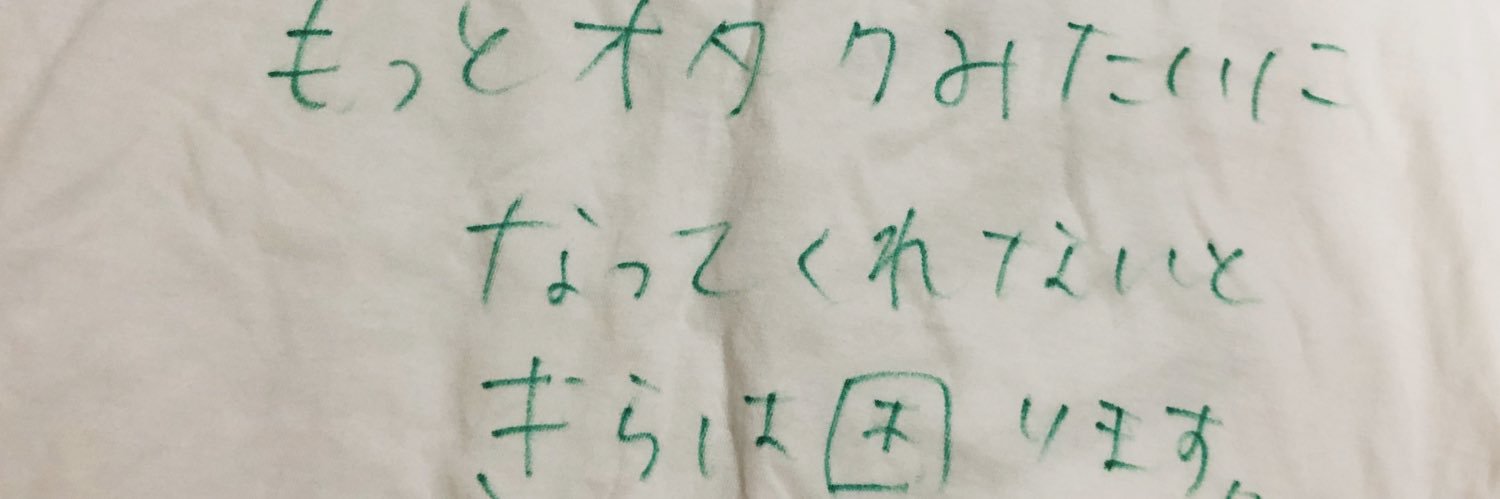 もっとオタクみたいに
なってくれないと
きらは困ります。